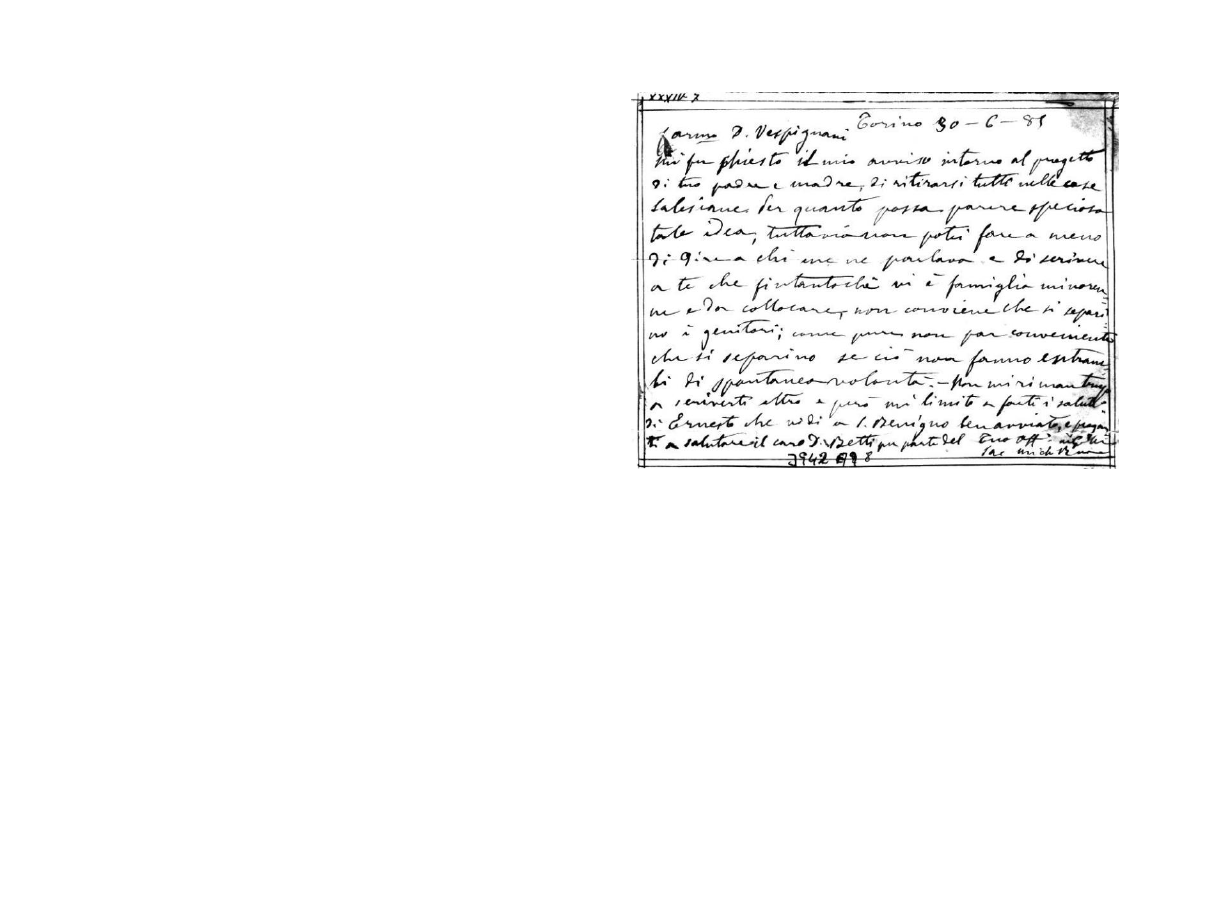 XXXIV X
Torino 30-6-81
Carmo D. Vespignani
Mi fu chiesto il mio avviso intorno al progetto
di tuo padre e madre, di ritirarsi tutti nelle case
Salesiane. Per quanto possa parere speciosa
tale idea, tuttavia non potei fare a meno
di dire a chi me ne parlava e di scrivere
a te che fintantochè vi è famiglia minoren-
ne e da collocare, non conviene che si separi-
no i genitori; come pure non par conveniente
che si separino se ciò non fanno entram-
bi di spontanea volontà. - Non mi riman tempo
a scriverti altro e però mi limito a farti i saluti
di Ernesto che vidi a S. Benigno ben avviato, e pregar-
ti a salutare il caro D. Betti per parte del Tuo aff.
Sac. Mich Rua
3942 698